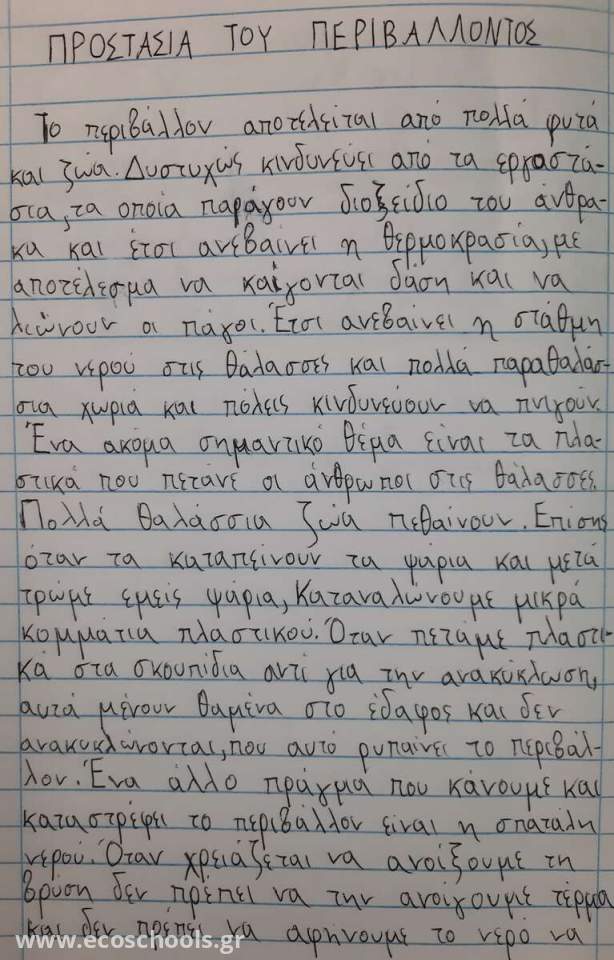 ΠΡΟΣΤΑΣΙΑ ΤΟΥ ΠΕΡΙΒΑΛΛΟΝΤΟΣ
Το περιβάλλον αποτελείται από πολλά φυτά
και ζώα. Δυστυχώς κινδυνεύει από τα εργαστά-
σια, τα οποία παράγουν διοξείδιο του άνθρα-
κα και έτσι ανεβαίνει η θερμοκρασία, με
αποτέλεσμα να καίγονται δάση και να
λιώνουν οι πάγοι. Έτσι ανεβαίνει η στάθμη
του νερού στις θάλασσες και πολλά παραθαλάσ-
σια χωριά και πόλεις κινδυνεύουν να πνιγούν.
Ένα ακόμα σημαντικό θέμα είναι τα πλα-
στικά που πετάνε οι άνθρωποι στις θάλασσες.
Πολλά θαλάσσια ζώα πεθαίνουν. Επίσης
όταν τα καταπίνουν τα ψάρια και μετά
τρώμε εμείς ψάρια, καταναλώνουμε μικρά
κομμάτια πλαστικού. Όταν πετάμε πλαστι-
κά στα σκουπίδια αντί για την ανακύκλωση,
αυτά μένουν θαμένα στο έδαφος και δεν
ανακυκλώνονται, που αυτό ρυπαίνει το περιβάλ-
λον. Ένα άλλο πράγμα που κάνουμε και
καταστρέφει το περιβάλλον είναι η σπατάλη
νερού. Όταν χρειάζεται να ανοίξουμε τη
βρύση δεν πρέπει να την ανοίγουμε τέρμα
και δεν πρέπει να αφήνουμε το νερό να
www.ecoschools.gr